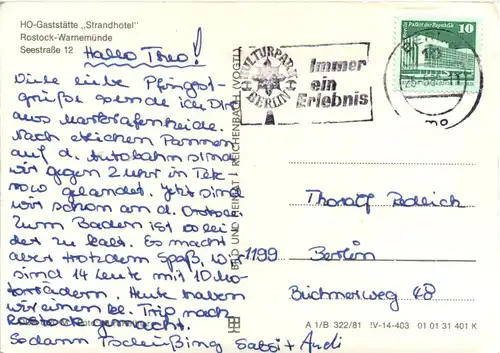 HO-Gaststätte „Strandhotel"
Rostock-Warnemünde
Seestraße 12
Hallo Theo!
Viele liebe Pfingst-
grüße sende ich Dir
aus Markgrafenheide.
Nach etlichen Pannen
auf d. Autobahn sind
wir gegen 2 Uhr in Tete
row gelandet. Jetzt sind
wir schon an d. Ostsee.
Zum Baden ist es lei
der zu kalt. Es macht
aber trotzdem Spaß. Wir
sind 14 Leute mit 10 Mo
torrädern. Heute haben
wir einen kl. Trip nach
Rostock gemacht.
So dann Tschüßing Gabi + Andi
BILD UND HEIMAT REICHENBACH (VOGTL)
KULTURPARK
BERLIN
Immer
ein
Erlebnis
Palast der Republik
10
DDR
Thoralf
1199 Berlin
Büchnerweg 48
A 1/B 322/81 IV-14-403 01 01 31 401 K